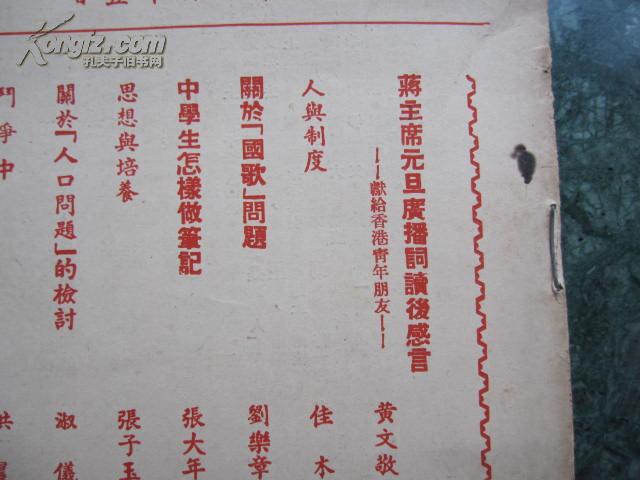 Kongfz.com
孔夫子旧书网
蔣主席元旦廣播詞讀後感言
——獻給香港青年朋友——
黄文敬
人與制度
佳木
關於「國歌」問題
劉樂章
中學生怎樣做筆記
張大年
思想與培養
張子玉
關於「人口問題」的檢討
淑儀
鬥爭中